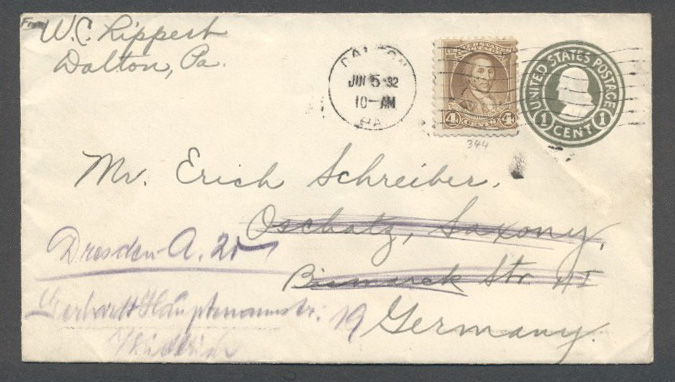 From
W.C. Lippert
Dalton, Pa.
DALTON
JUN 5 32
10-AM
PA
4 4
UNITED STATES POSTAGE
1 CENT 1
344
Mr. Erich Schreiber,
Oschatz, Saxony,
Bismarck Str.
Germany.
Dresden-A. 20
Gerhart Hauptmannstr. 19